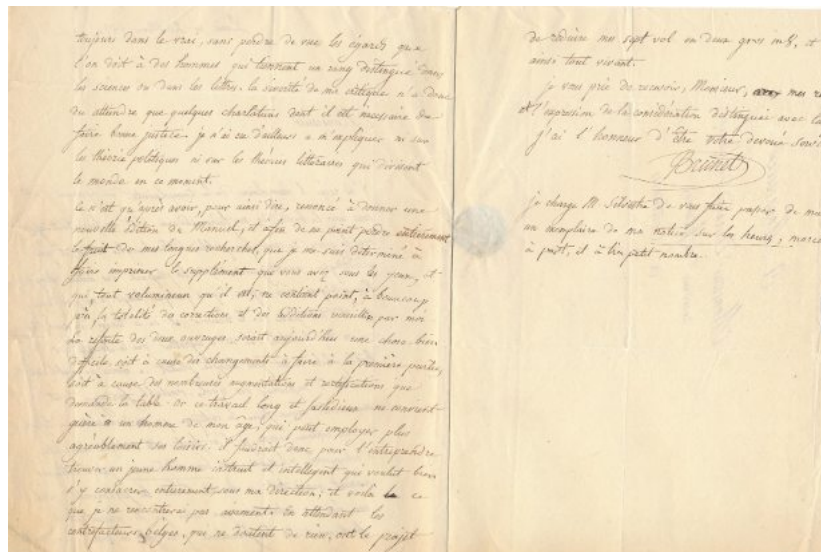 toujours dans le vrai, sans perdre de vue les égards que
l'on doit à des hommes qui tiennent un rang distingué dans
les sciences ou dans les lettres. la sévérité de ma critique n'a donc
du atteindre que quelques charlatans dont il est nécessaire de
faire bonne justice. je n'ai eu d'ailleurs à m'expliquer ni sur
les théories politiques ni sur les théories littéraires qui divisent
le monde en ce moment.
Ce n'est qu'après avoir, pour ainsi dire, renoncé à donner une
nouvelle édition du Manuel, et afin de ne point perdre entièrement
le fruit de mes longues recherches, que je me suis déterminé à
faire imprimer le supplément que vous avez sous les yeux, et
qui, tout volumineux qu'il est, ne contient point, à beaucoup
près, la totalité des corrections et des additions recueillies par moi
La refonte des deux ouvrages serait aujourd'hui une chose bien
difficile, soit à cause des changements à faire à la première partie,
soit à cause des nombreuses augmentations et rectifications que
demande la table. Or ce travail long et fastidieux ne convient
guère à un homme de mon âge, qui peut employer plus
agréablement ses loisirs. il faudrait donc, pour l'entreprendre
trouver un jeune homme instruit et intelligent qui voulut bien
s'y consacrer entièrement sous ma direction; et voilà ce
que je ne rencontrerai pas aisément. en attendant les
contrefacteurs belges, qui ne doutent de rien, ont le projet
de réduire mes sept vol en deux gros in 8, et
ainsi tout vivant.
je vous prie de recevoir, Monsieur, mes re
et l'expression de la considération distinguée avec la
j'ai l'honneur d'être votre dévoué servi
Brunet
je charge M. Silvestre de vous faire passer, de ma
un exemplaire de ma notice sur les heures, morce
à part, et à très petit nombre.